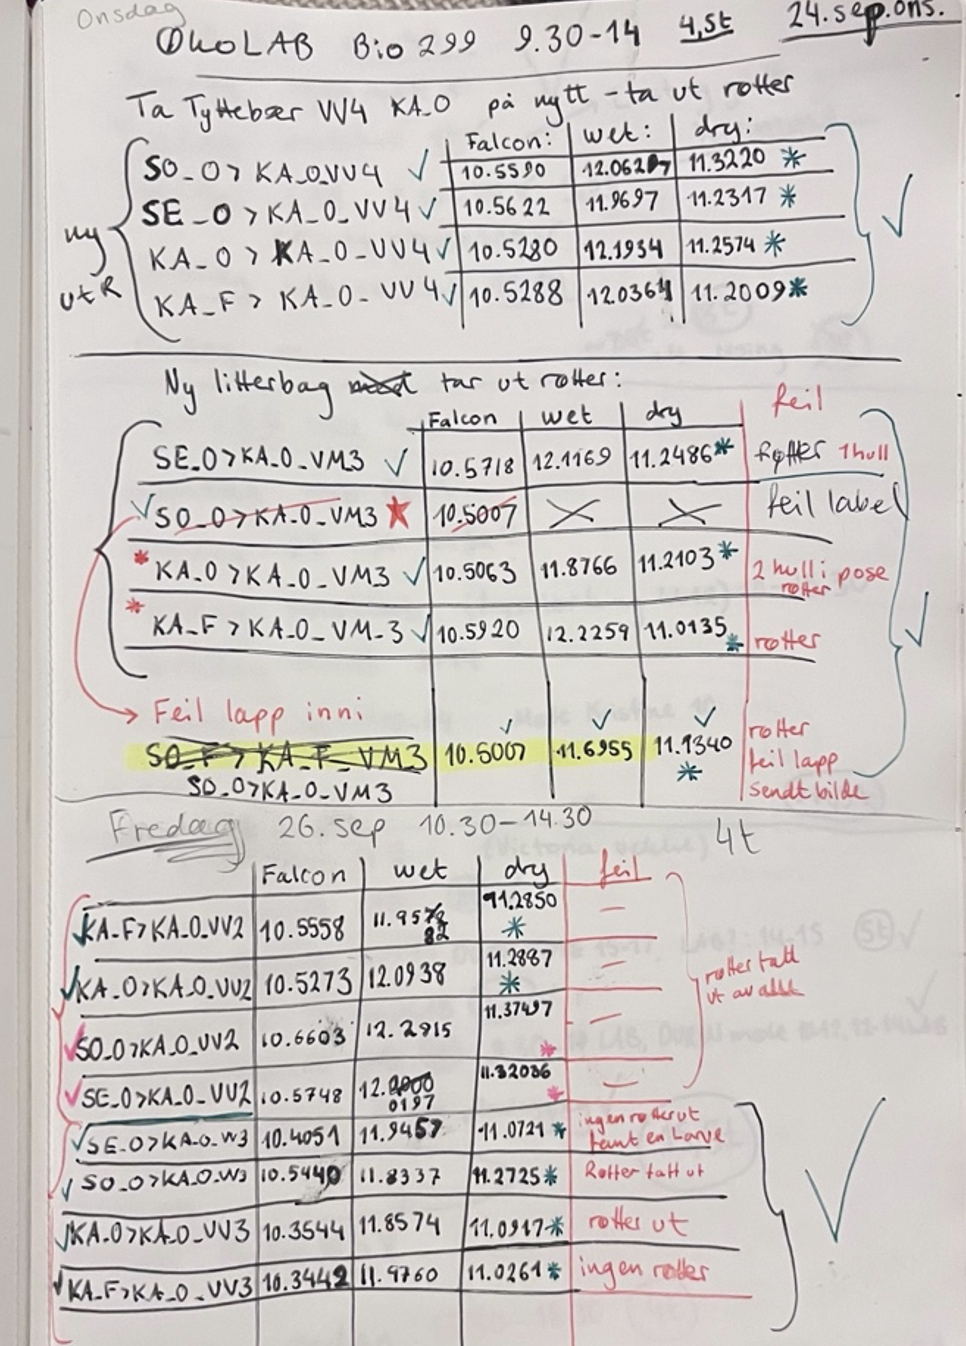 Onsdag
24.sep.ons.
ØkoLAB Bio 299 9.30-14 4,5t
Ta Tyttebær VV4 KA_O på nytt - ta ut røtter
Falcon: wet: dry:
SO_O > KA_O_VV4 ✓ 10.5590 12.0627 11.3220 *
SE_O > KA_O_VV4 ✓ 10.5622 11.9697 11.2317 *
ny
KA_O > KA_O_VV4 ✓ 10.5280 12.1934 11.2574 *
utR
KA_F > KA_O_VV4 ✓ 10.5288 12.0364 11.2009 *
Ny litterbag tar ut røtter:
Falcon wet dry feil
SE_O > KA_O_VM3 ✓ 10.5718 12.1169 11.2486 * røtter 1 hull
✓ SO_O > KA_O_VM3 ★ 10.5007 X X feil label
* KA_O > KA_O_VM3 ✓ 10.5063 11.8766 11.2103 * 2 hull i pose
røtter
* KA_F > KA_O_VM_3 ✓ 10.5920 12.2259 11.0135 * røtter
→ Feil lapp inni
SO_F > KA_F_VM3 10.5007 11.6955 11.1340 * røtter
feil lapp
SO_O > KA_O_VM3 sendt bilde
Fredag 26.sep 10.30-14.30 4t
Falcon wet dry feil
✓ KA_F > KA_O_VV2 10.5558 11.9582 11.2850 * –
✓ KA_O > KA_O_VV2 10.5273 12.0938 11.2887 * –
røtter tatt
ut av alle
✓ SO_O > KA_O_VV2 10.6603 12.2815 11.37497 * –
✓ SE_O > KA_O_VV2 10.5748 12.0197 11.32086 * –
✓ SE_O > KA_O_VV3 10.4051 11.9457 11.0721 * ingen røtter ut
fant en Larve
✓ SO_O > KA_O_VV3 10.5440 11.8337 11.2725 * Røtter tatt ut
✓ KA_O > KA_O_VV3 10.3544 11.8574 11.0917 * røtter ut
✓ KA_F > KA_O_VV3 10.3442 11.9760 11.0261 * ingen røtter